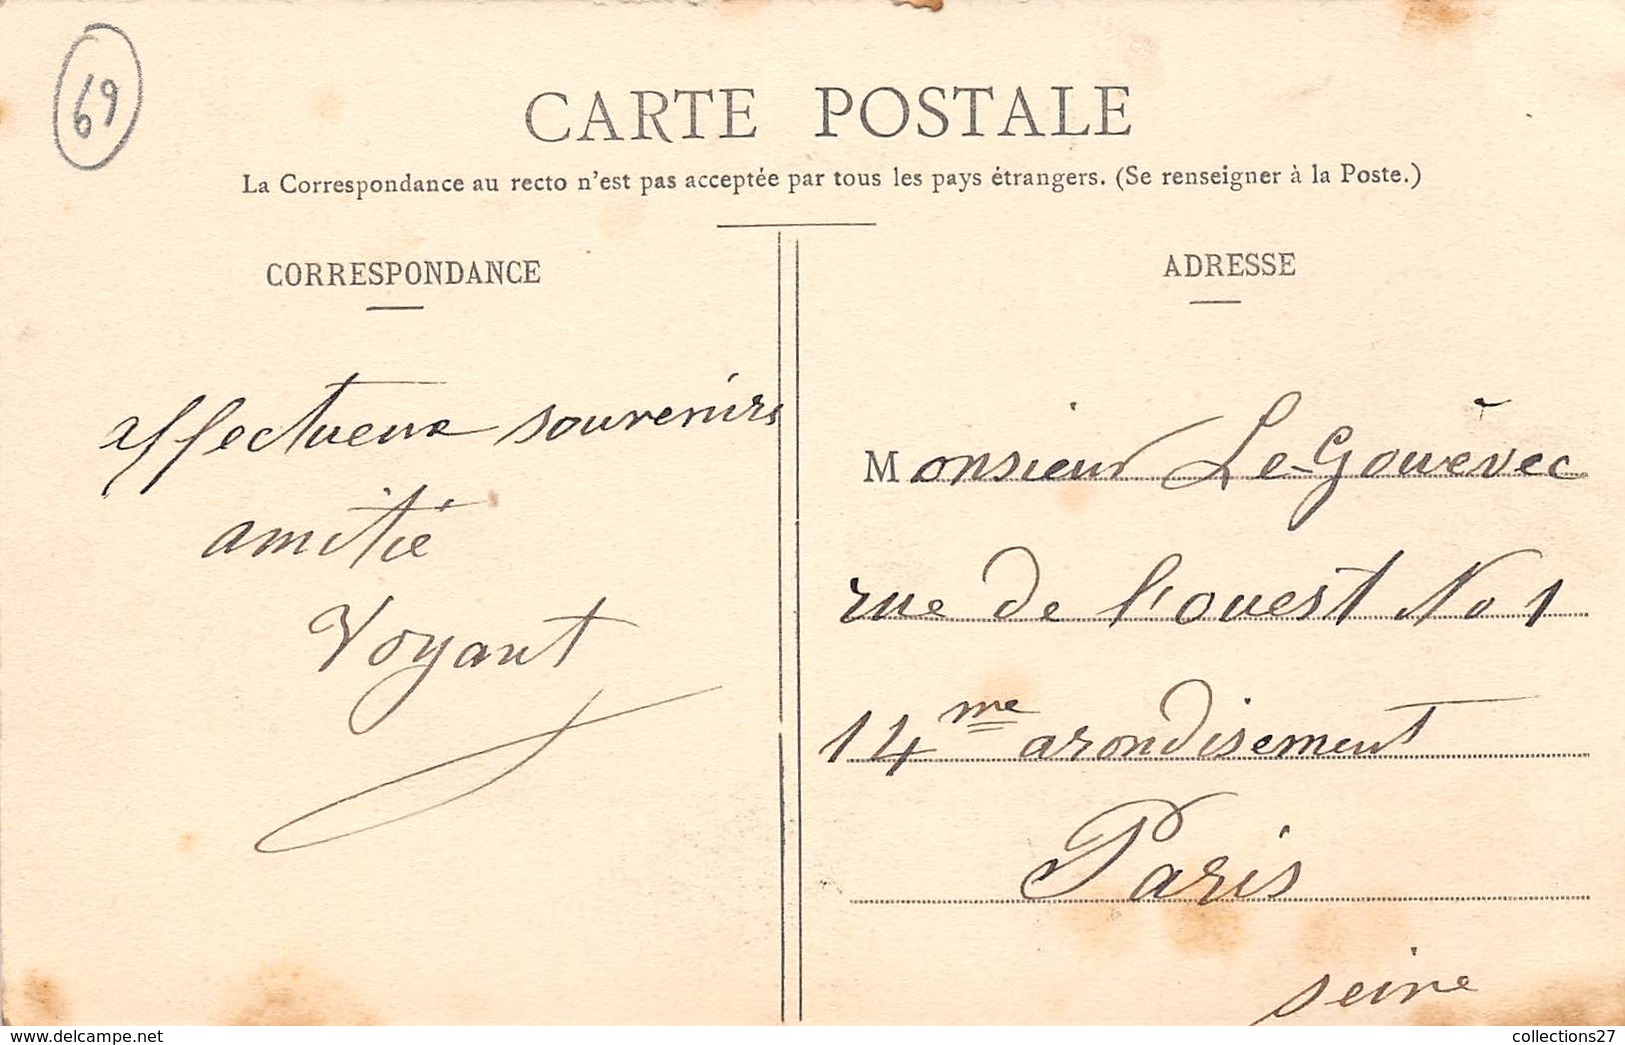 69
CARTE POSTALE
La Correspondance au recto n'est pas acceptée par tous les pays étrangers. (Se renseigner à la Poste.)
CORRESPONDANCE
affectueux souvenirs
amitié
Voyant
ADRESSE
Monsieur Le Gouèvec
rue de l'ouest No 1
14me arondisement
Paris
seine
https://www.delcampe.net
collections27